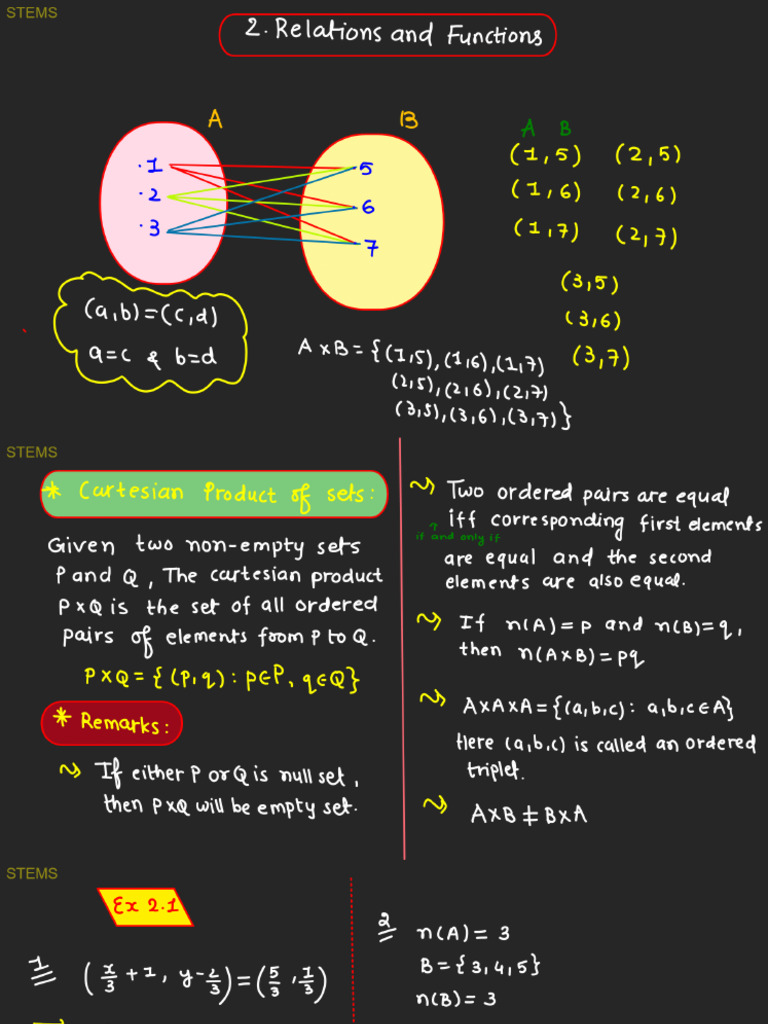 STEMS
2. Relations and Functions
A B
A B
·1 5
·2 6
·3 7
(1,5) (2,5)
(1,6) (2,6)
(1,7) (2,7)
(3,5)
(3,6)
(3,7)
(a,b)=(c,d)
a=c & b=d
A×B={(1,5),(1,6),(1,7)
(2,5),(2,6),(2,7)
(3,5),(3,6),(3,7)}
STEMS
* Cartesian Product of sets:
Given two non-empty sets
P and Q, The cartesian product
P×Q is the set of all ordered
pairs of elements from P to Q.
P×Q={(P,q): p∈P, q∈Q}
* Remarks:
~ If either P or Q is null set,
then P×Q will be empty set.
~ Two ordered pairs are equal
iff corresponding first elements
↑
if and only if
are equal and the second
elements are also equal.
~ If n(A)=p and n(B)=q,
then n(A×B)=pq
~ A×A×A={(a,b,c): a,b,c∈A}
Here (a,b,c) is called an ordered
triplet.
~ A×B≠B×A
STEMS
Ex 2.1
1 (x/3 +1, y-2/3)=(5/3,1/3)
2 n(A)= 3
B={3,4,5}
n(B)=3